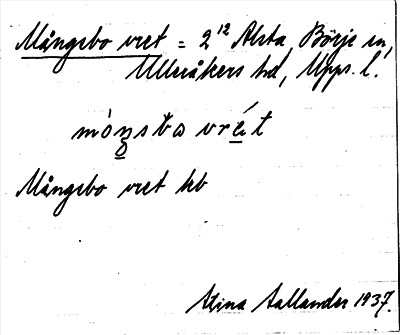 Mångsbo vret = 2¹² Alsta, Börje sn,
Ulleråkers hd, Upps. l.
Mångsbo vret hb
Stina Sallander 1937.